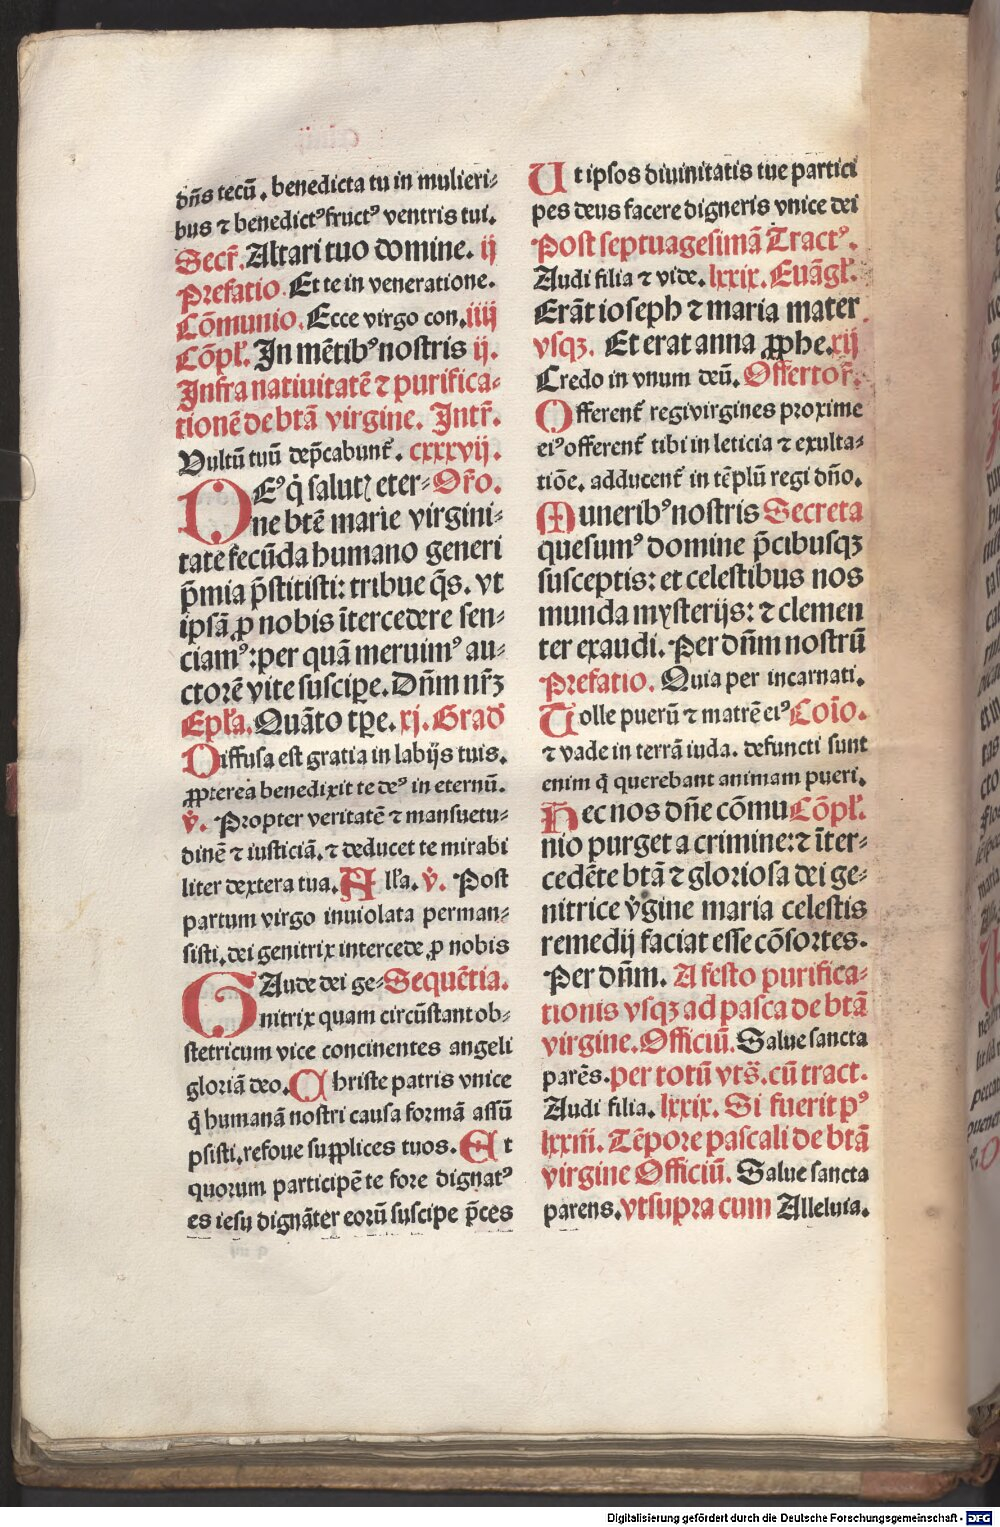 dn̄s tecū. benedicta tu in mulieri⸗
bus ⁊ benedictꝰ fructꝰ ventris tui.
Secr̄. Altari tuo domine. ij
Prefatio. Et te in veneratione.
Cōmunio. Ecce virgo con. iiij
Cōpl̄. In mētibꝰ nostris ij.
Infra natiuitatē ⁊ purifica⸗
tionē de btā virgine. Intr̄.
Vultū tuū dep̄cabunt̄. cxxxvij.
DEꝰ q̄ salutꝭ eter⸗ Or̄o.
ne btē marie virgini⸗
tate fecūda humano generi
p̄mia p̄stitisti: tribue q̄s. vt
ipsā ꝓ nobis ītercedere sen⸗
ciamꝰ: per quā meruimꝰ au⸗
ctorē vite suscipe. Dn̄m nr̄ꝫ
Ep̄la. Quāto tp̄e. xj. Grad̄
Diffusa est gratia in labijs tuis.
ꝓpterea benedixit te deꝰ in eternū.
v̄. Propter veritatē ⁊ mansuetu⸗
dinē ⁊ iusticiā. ⁊ deducet te mirabi
liter dextera tua. All̄a. v̄. Post
partum virgo inuiolata perman⸗
sisti. dei genitrix intercede ꝓ nobis
GAude dei ge⸗ Sequētia.
nitrix quam circūstant ob⸗
stetricum vice concinentes angeli
gloriā deo. Christe patris vnice
q̄ humanā nostri causa formā assū
psisti. refoue supplices tuos. Et
quorum participē te fore dignatꝰ
es iesu dignāter eorū suscipe p̄ces
Ut ipsos diuinitatis tue partici
pes deus facere digneris vnice dei
Post septuagesimā Tractꝰ.
Audi filia ⁊ vide. lxxix. Euāgl̄.
Erāt ioseph ⁊ maria mater
vsqꝫ. Et erat anna ꝓphe. xij
Credo in vnum deū. Offertor̄.
Offerent̄ regi virgines proxime
eiꝰ offerent̄ tibi in leticia ⁊ exulta⸗
tiōe. adducent̄ in tēplū regi dn̄o.
Muneribꝰ nostris Secreta
quesumꝰ domine p̄cibusqꝫ
susceptis: et celestibus nos
munda mysterijs: ⁊ clemen
ter exaudi. Per dn̄m nostrū
Prefatio. Quia per incarnati.
Tolle puerū ⁊ matrē eiꝰ Coīo.
⁊ vade in terrā iuda. defuncti sunt
enim q̄ querebant animam pueri.
Hec nos dn̄e cōmu Cōpl̄.
nio purget a crimine: ⁊ īter⸗
cedēte btā ⁊ gloriosa dei ge⸗
nitrice v̄gine maria celestis
remedij faciat esse cōsortes.
Per dn̄m. A festo purifica⸗
tionis vsqꝫ ad pasca de btā
virgine. Officiū. Salue sancta
parēs. per totū vts̄. cū tract.
Audi filia. lxxix. Si fuerit pꝰ
lxxiij. Tēpore pascali de btā
virgine Officiū. Salue sancta
parens. vt supra cum Alleluia.
Digitalisierung gefördert durch die Deutsche Forschungsgemeinschaft - DFG